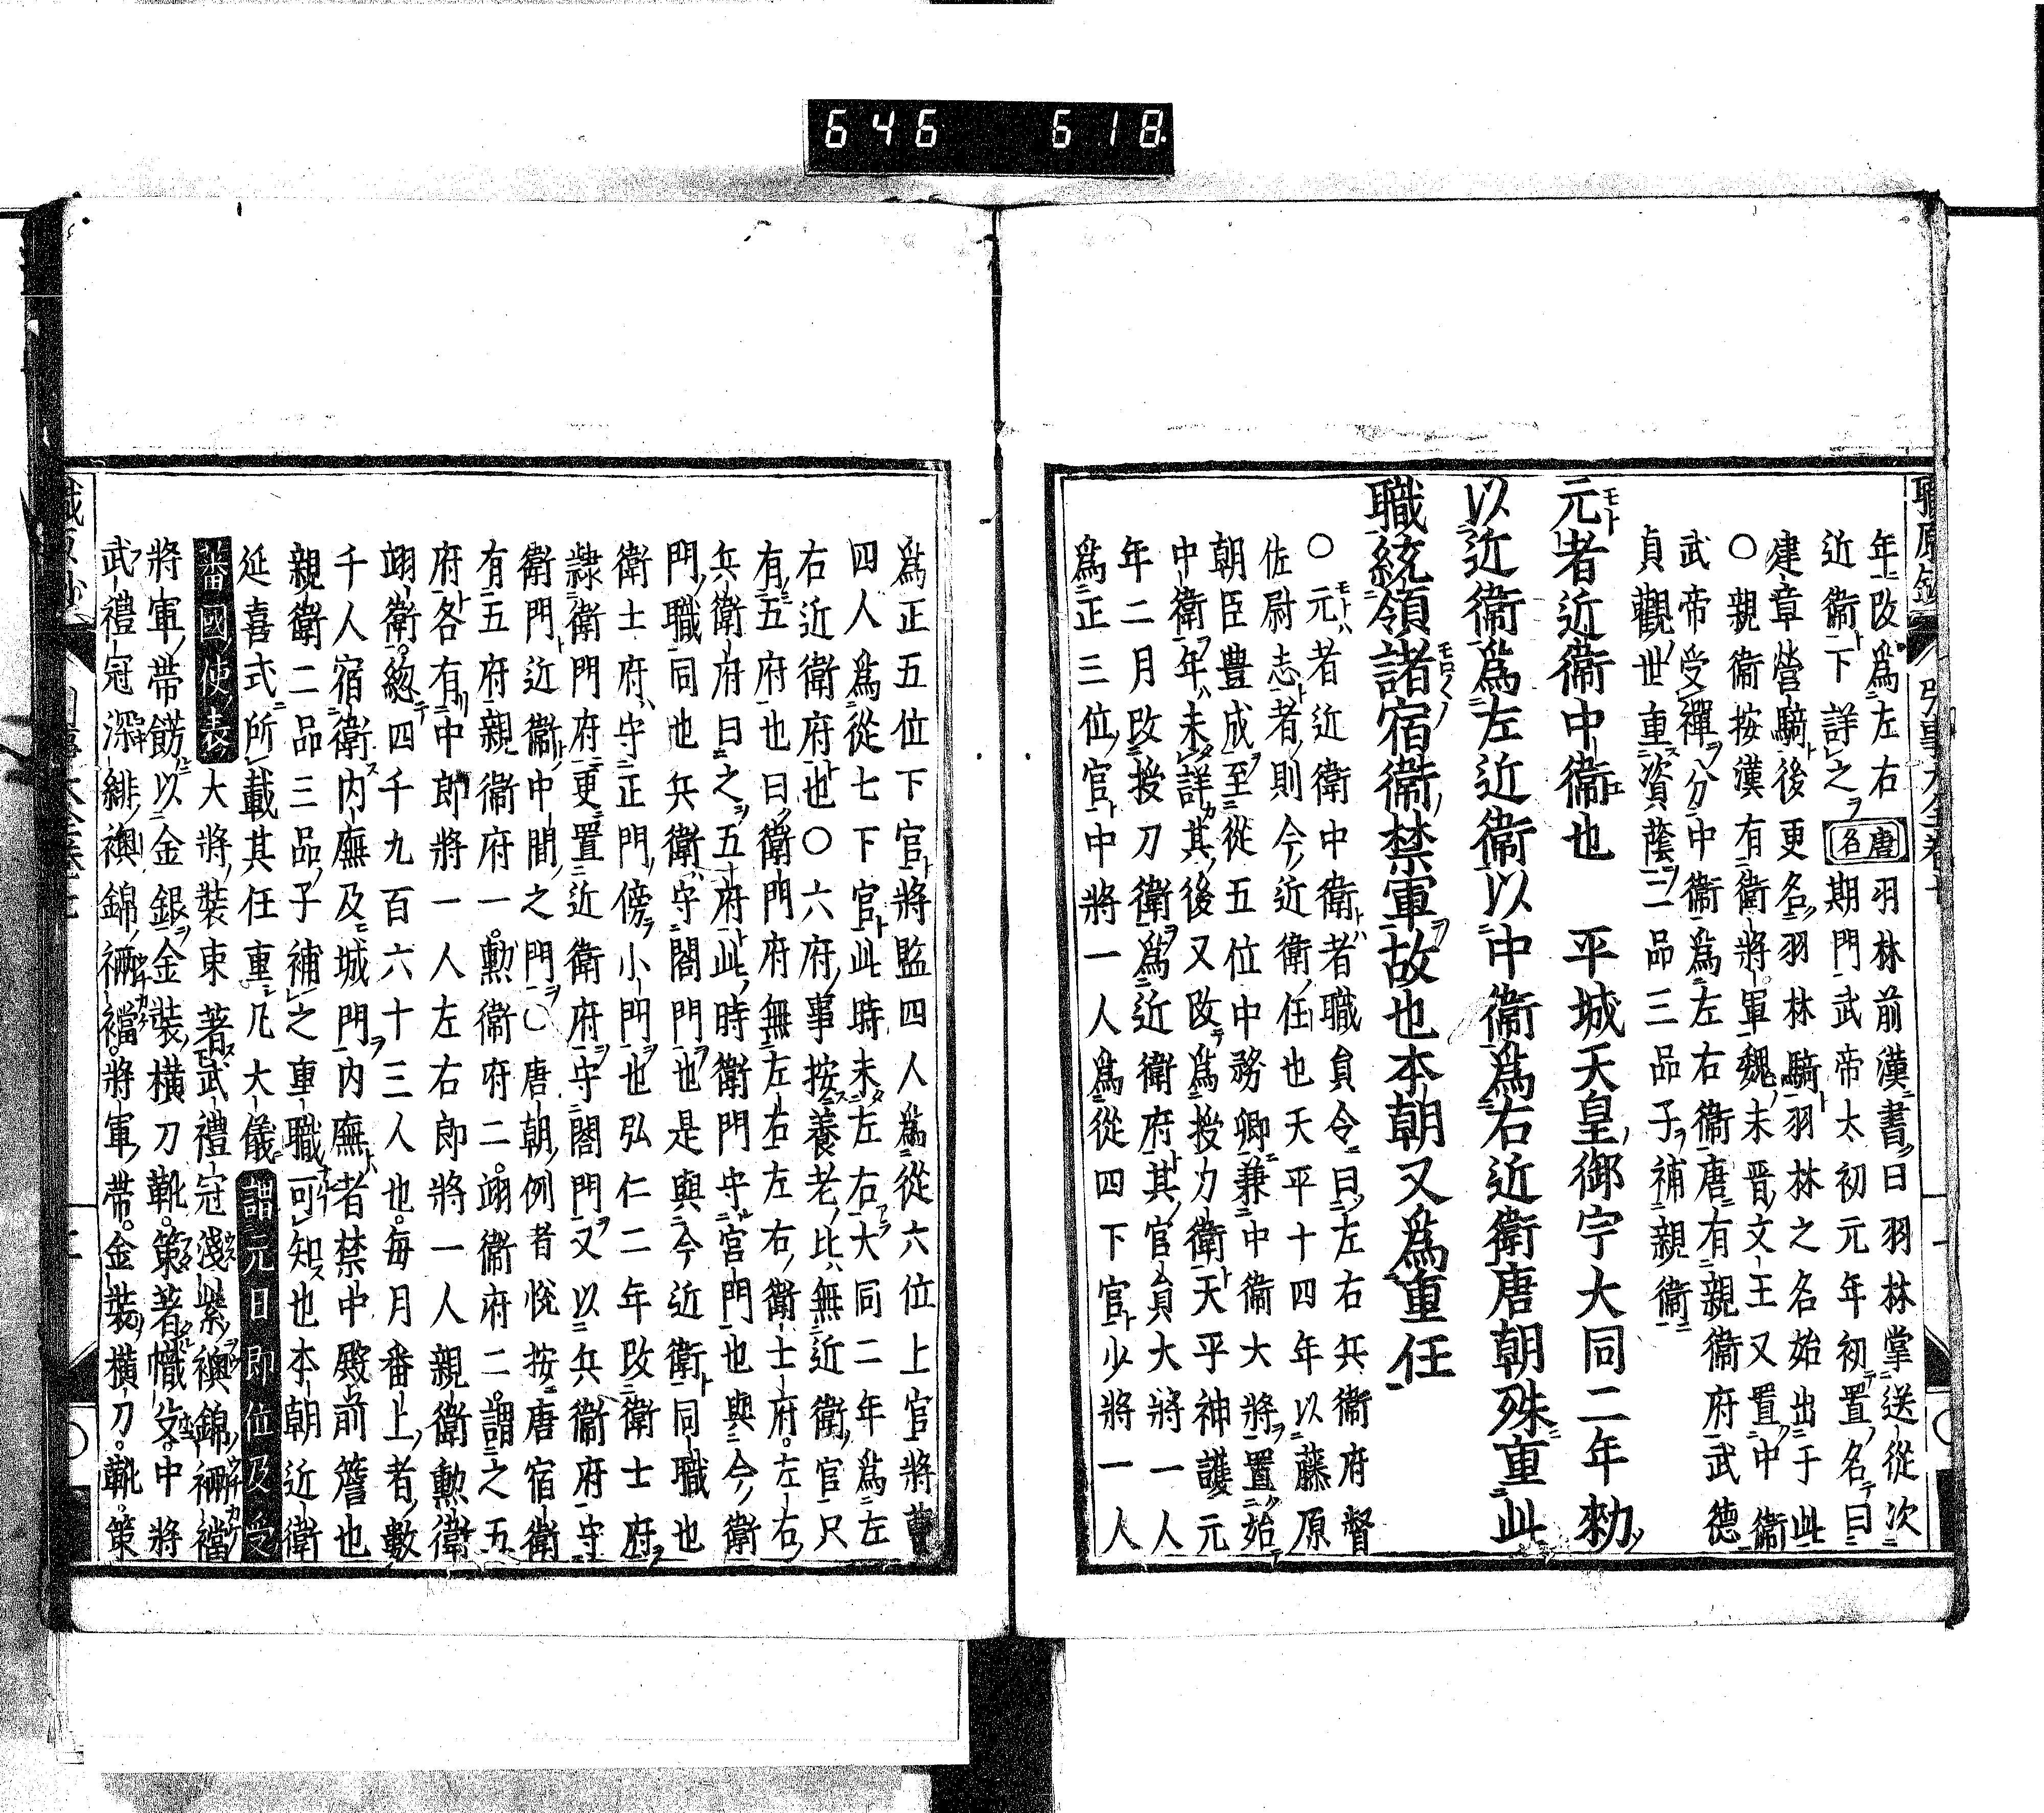 646 618
年改爲左右羽林前漢書曰羽林掌送從次
近衞下詳之唐名期門武帝太初元年初置名曰
建章營騎後更名羽林騎羽林之名始出于此
〇親衞按漢有衞將軍魏末晉文王又置中衞
武帝受禪分中衞爲左右衞唐有親衞府武德
貞觀世重資蔭二品三品子補親衞
元者近衞中衞也 平城天皇御宁大同二年勅
以近衞爲左近衞以中衞爲右近衞唐朝殊重此
職統領諸宿衞禁軍故也本朝又爲重任
〇元者近衞中衞者職員令曰左右兵衞府督
佐尉志者則今近衞任也天平十四年以藤原
朝臣豊成至從五位中務卿兼中衞大將置始
中衞年未詳其後又改爲授刀衞天平神護元
年二月改授刀衞爲近衞府其官員大將一人
爲正三位官中將一人爲從四下官少將一人
爲正五位下官將監四人爲從六位上官將曹
四人爲從七下官此時未左右大同二年爲左
右近衞府也〇六府事按養老比無近衞官只
有五府也曰衞門府無左右左右衞士府左右
兵衞府曰之五府此時衞門守宮門也與今衞
門職同也兵衞守閤門也是與今近衞同職也
衞士府守正門傍小門也弘仁二年改衞士府
隷衞門府更置近衞府守閤門又以兵衞府守
衞門近衞中間之門〇唐朝例者悅按唐宿衞
有五府親衞府一勲衞府二翊衞府二謂之五
府各有中郎將一人左右郎將一人親衞勲衞
翊衞總四千九百六十三人也每月番上者數
千人宿衞内廡及城門内廡者禁中殿前簷也
親衞二品三品子補之重職可知也本朝近衞
延喜式所載其任重凡大儀謂元日即位及受
蕃國使表大將裝束著武禮冠淺紫襖錦裲襠
將軍帶餝以金銀金裝横刀靴策著幟殳中將
武禮冠深緋襖錦裲襠將軍帶金裝横刀靴策